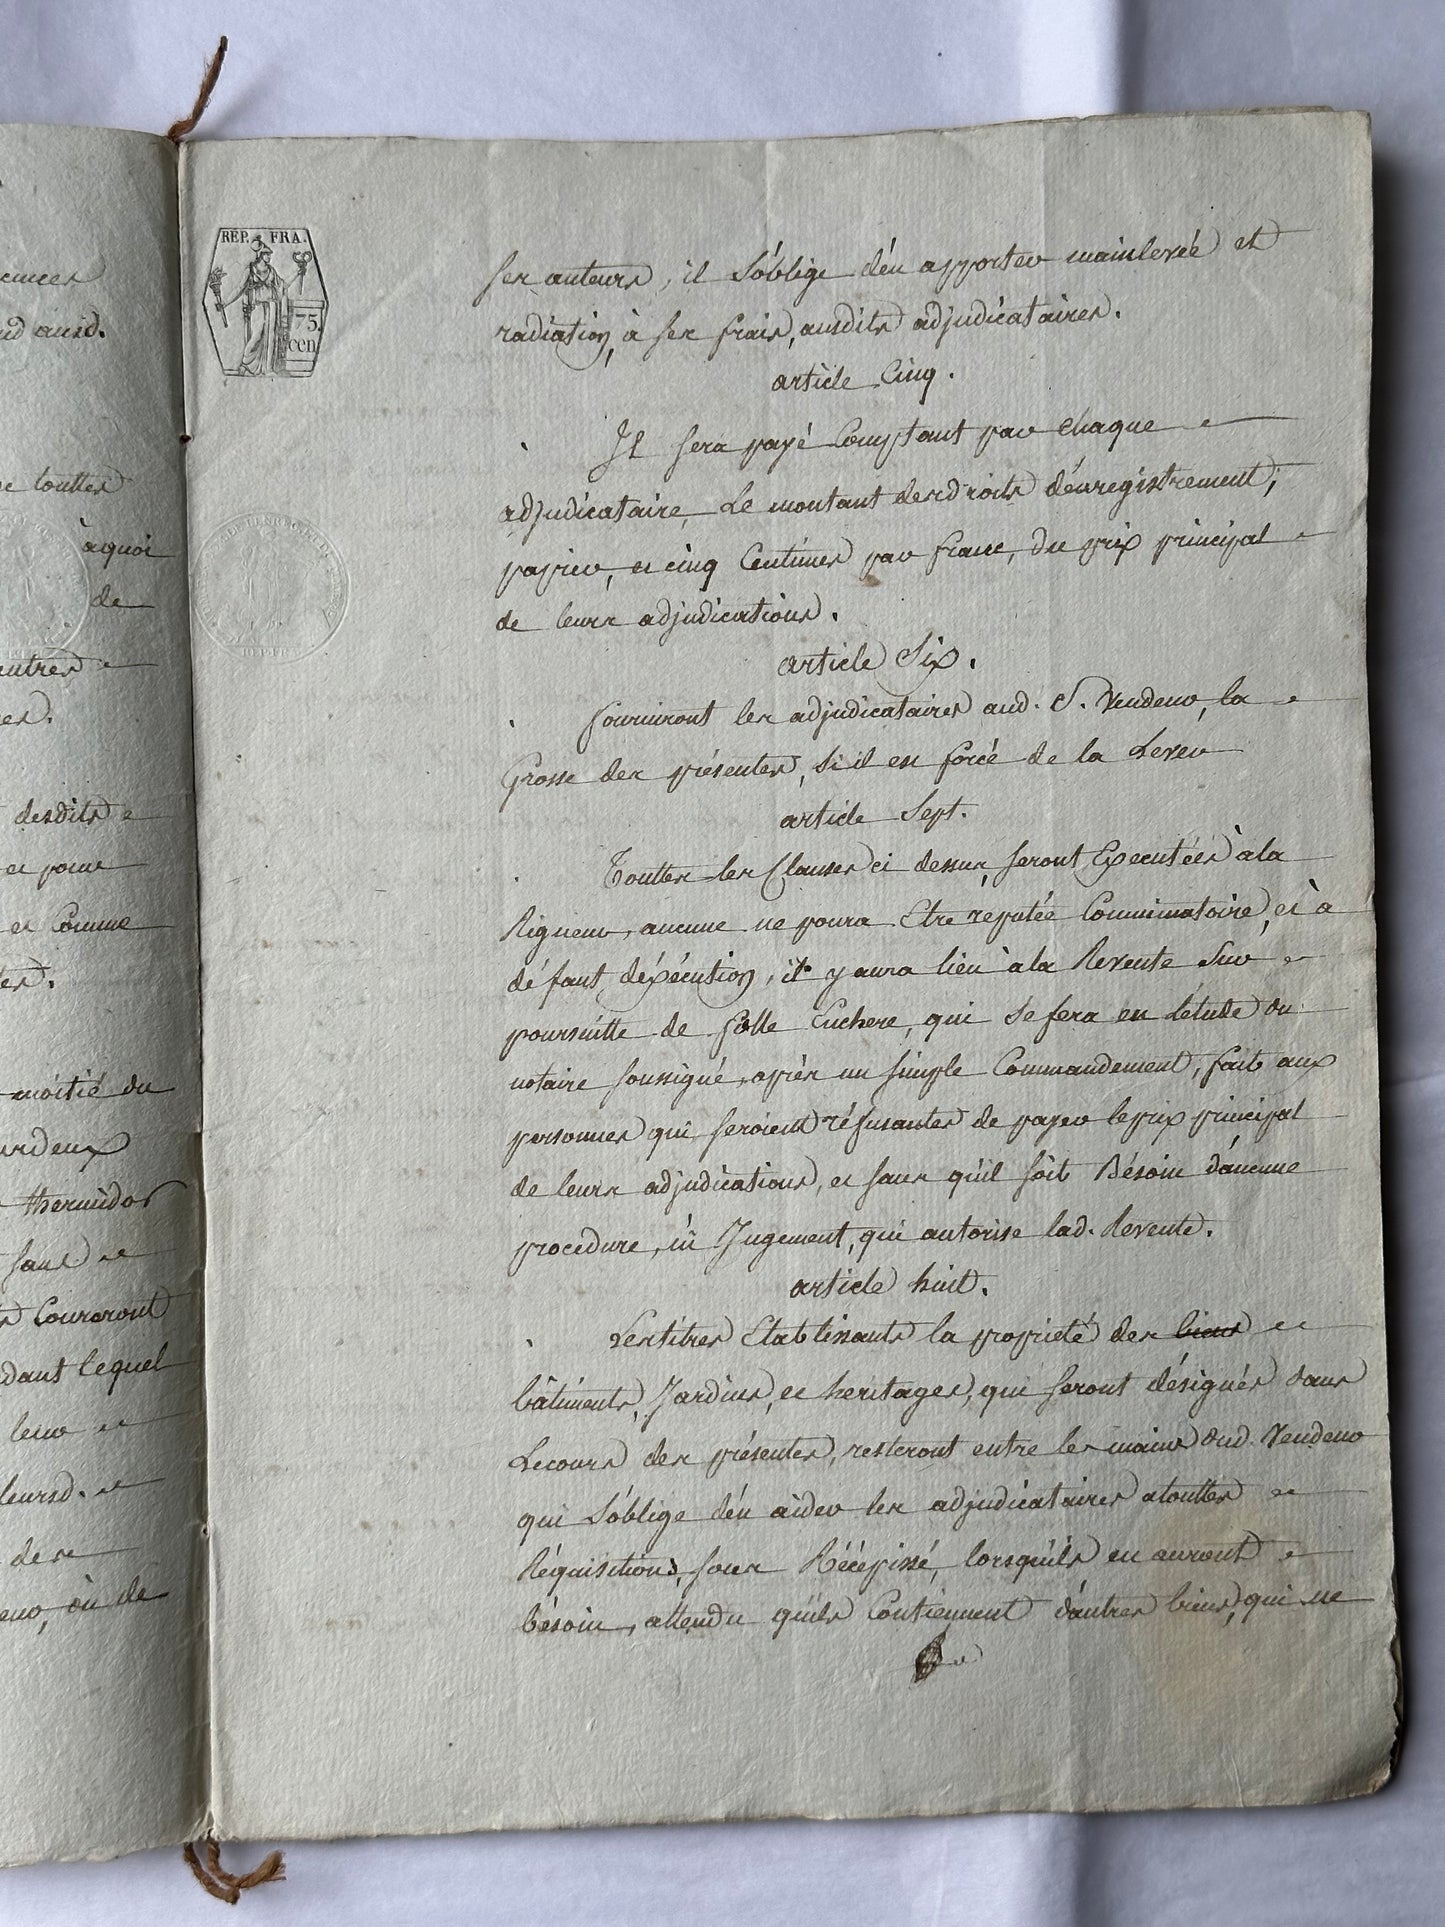 cences
ud ausd.
e touttes
àquoi
de
autres
es.
desdits
et pour
et Comme
es.
moitié du
deux
thermidor
sans
Coureront
dant lequel
leur
leursd.
de
ou de
REP. FRA.
75.
cen
ses auteurs, il s'oblige d'en apporter mainlevée et
radiation, à ses frais, ausdits adjudicataires.
article Cinq.
Il sera payé Comptant par Chaque
adjudicataire, Le montant des droits d'enregistrement,
papier, et cinq Centimes par franc, du prix principal
de leurs adjudications.
article Six.
fourniront les adjudicataires aud. S. Vendeur, la
Grosse des présentes, si il est forcé de la Lever
article Sept.
Touttes les Clauses ci dessus, seront Executées à la
Rigueur, aucune ne poura Etre réputée Comminatoire, et à
défaut d'éxécution, il y aura lieu à la Revente Sur
poursuitte de folle Enchere, qui se fera en L'étude du
notaire soussigné, après un simple Commandement, fait aux
personnes qui seroient réfusantes de payer le prix principal
de leurs adjudications, et sans qu'il soit Bésoin d'aucune
procedure, ni Jugement, qui autorise lad. Revente.
article huit.
Les titres Etablissants la propriété des biens
bâtiments, Jardins, et heritages, qui seront désignés dans
Le cours des présentes, resteront entre les mains dud. Vendeur
qui s'oblige d'en aider les adjudicataires a touttes
Réquisitions, sous Récépissé, lorsqu'ils en auront
bésoin, attendu qu'ils Contiennent d'autres biens, qui ne